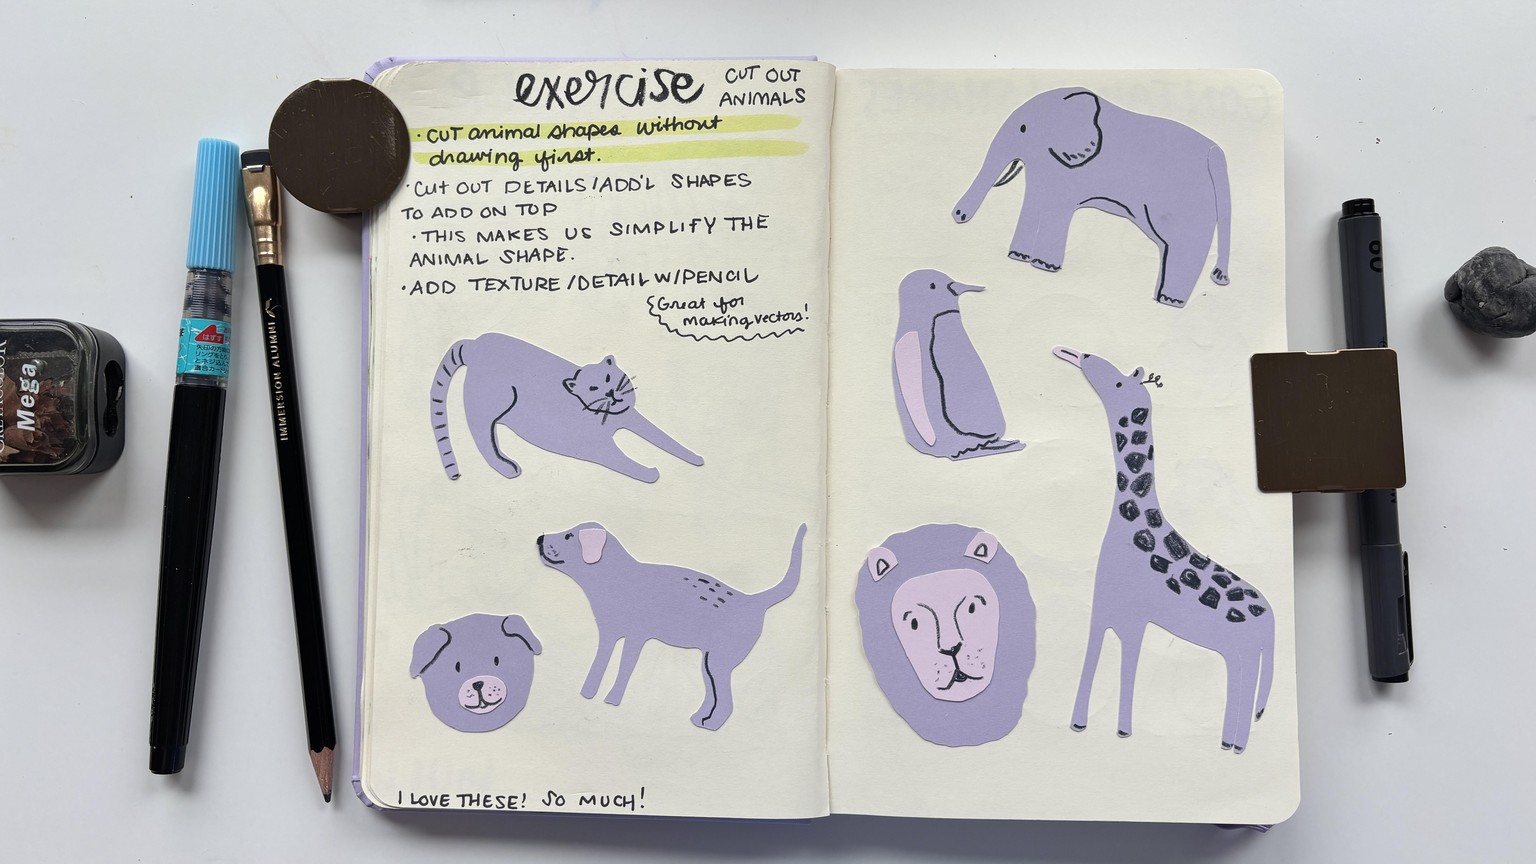 exercise
CUT OUT
ANIMALS
· CUT animal shapes without
drawing first.
· CUT OUT DETAILS/ADD'L SHAPES
TO ADD ON TOP
· THIS MAKES US SIMPLIFY THE
ANIMAL SHAPE.
· ADD TEXTURE/DETAIL W/PENCIL
Great for
making vectors!
I LOVE THESE! SO MUCH!
IMMERSION ALUMNI
Mega
はずす
80